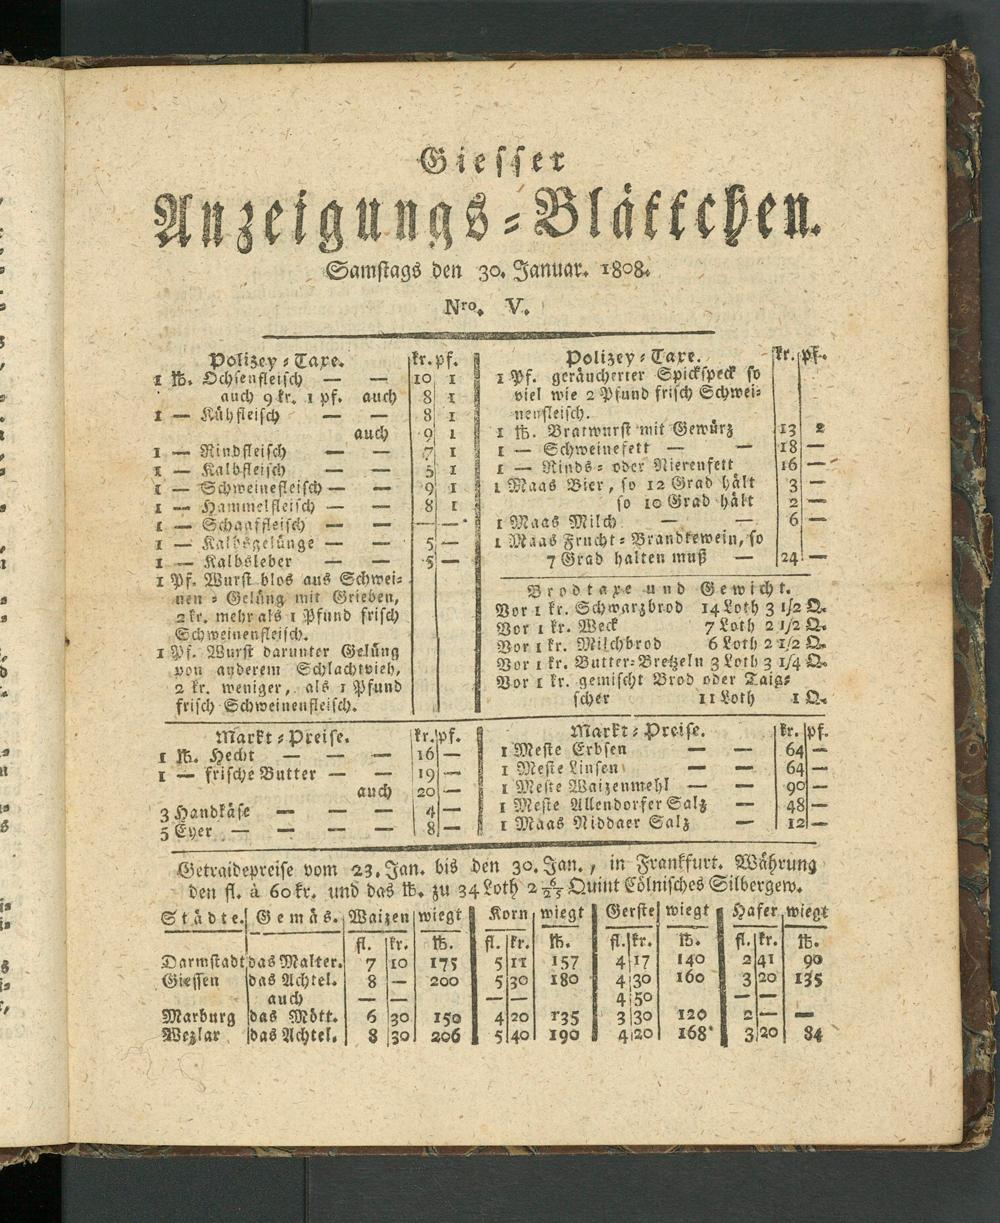 Giesser
Anzeigungs-Blättchen.
Samstags den 30. Januar. 1808.
Nro. V.
Polizey-Taxe. kr. pf.
1 ℔. Ochsenfleisch — — 10 1
auch 9 kr. 1 pf. auch 8 1
1 — Kühfleisch — — 8 1
auch 9 1
1 — Rindfleisch — — 7 1
1 — Kalbfleisch — — 5 1
1 — Schweinefleisch — — 9 1
1 — Hammelfleisch — — 8 1
1 — Schaaffleisch — — — —
1 — Kalbsgelünge — — 5 —
1 — Kalbsleber — — 5 —
1 Pf. Wurst blos aus Schwei-
nen-Gelüng mit Grieben,
2 kr. mehr als 1 Pfund frisch
Schweinenfleisch.
1 Pf. Wurst darunter Gelüng
von anderem Schlachtvieh,
2 kr. weniger, als 1 Pfund
frisch Schweinenfleisch.
Polizey-Taxe. kr. pf.
1 Pf. geräucherter Spickspeck so
viel wie 2 Pfund frisch Schwei-
nenfleisch.
1 ℔. Bratwurst mit Gewürz 13 2
1 — Schweinefett — — 18 —
1 — Rinds- oder Nierenfett 16 —
1 Maas Bier, so 12 Grad hält 3 —
so 10 Grad hält 2 —
1 Maas Milch — — 6 —
1 Maas Frucht-Brandtewein, so
7 Grad halten muß — 24 —
Brodtaxe und Gewicht.
Vor 1 kr. Schwarzbrod 14 Loth 3 1/2 Q.
Vor 1 kr. Weck 7 Loth 2 1/2 Q.
Vor 1 kr. Milchbrod 6 Loth 2 1/2 Q.
Vor 1 kr. Butter-Bretzeln 3 Loth 3 1/4 Q.
Vor 1 kr. gemischt Brod oder Taig-
scher 11 Loth 1 Q.
Markt-Preise. kr. pf.
1 ℔. Hecht — — 16 —
1 — frische Butter — — 19 —
auch 20 —
3 Handkäse — — — 4 —
5 Eyer — — — — 8 —
Markt-Preise. kr. pf.
1 Meste Erbsen — — 64 —
1 Meste Linsen — — 64 —
1 Meste Waizenmehl — — 90 —
1 Meste Allendorfer Salz — 48 —
1 Maas Niddaer Salz — 12 —
Getraidepreise vom 23. Jan. bis den 30. Jan., in Frankfurt. Währung
den fl. à 60 kr. und das ℔. zu 34 Loth 2 6/25 Quint Cölnisches Silbergew.
Städte. Gemäs. Waizen wiegt Korn wiegt Gerste wiegt Hafer wiegt
fl. kr. ℔. fl. kr. ℔. fl. kr. ℔. fl. kr. ℔.
Darmstadt das Malter. 7 10 175 5 11 157 4 17 140 2 41 90
Giessen das Achtel. 8 — 200 5 30 180 4 30 160 3 20 135
auch — — — — 4 50 — —
Marburg das Mött. 6 30 150 4 20 135 3 30 120 2 — —
Wezlar das Achtel. 8 30 206 5 40 190 4 20 168 3 20 84